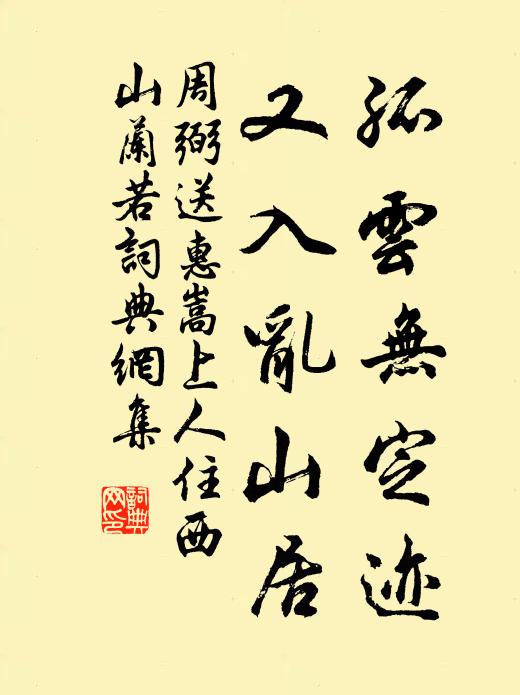 孤雲無定迹
又入亂山居
周弼送惠嵩上人住西
山蘭若詞典網集
詞典
网印